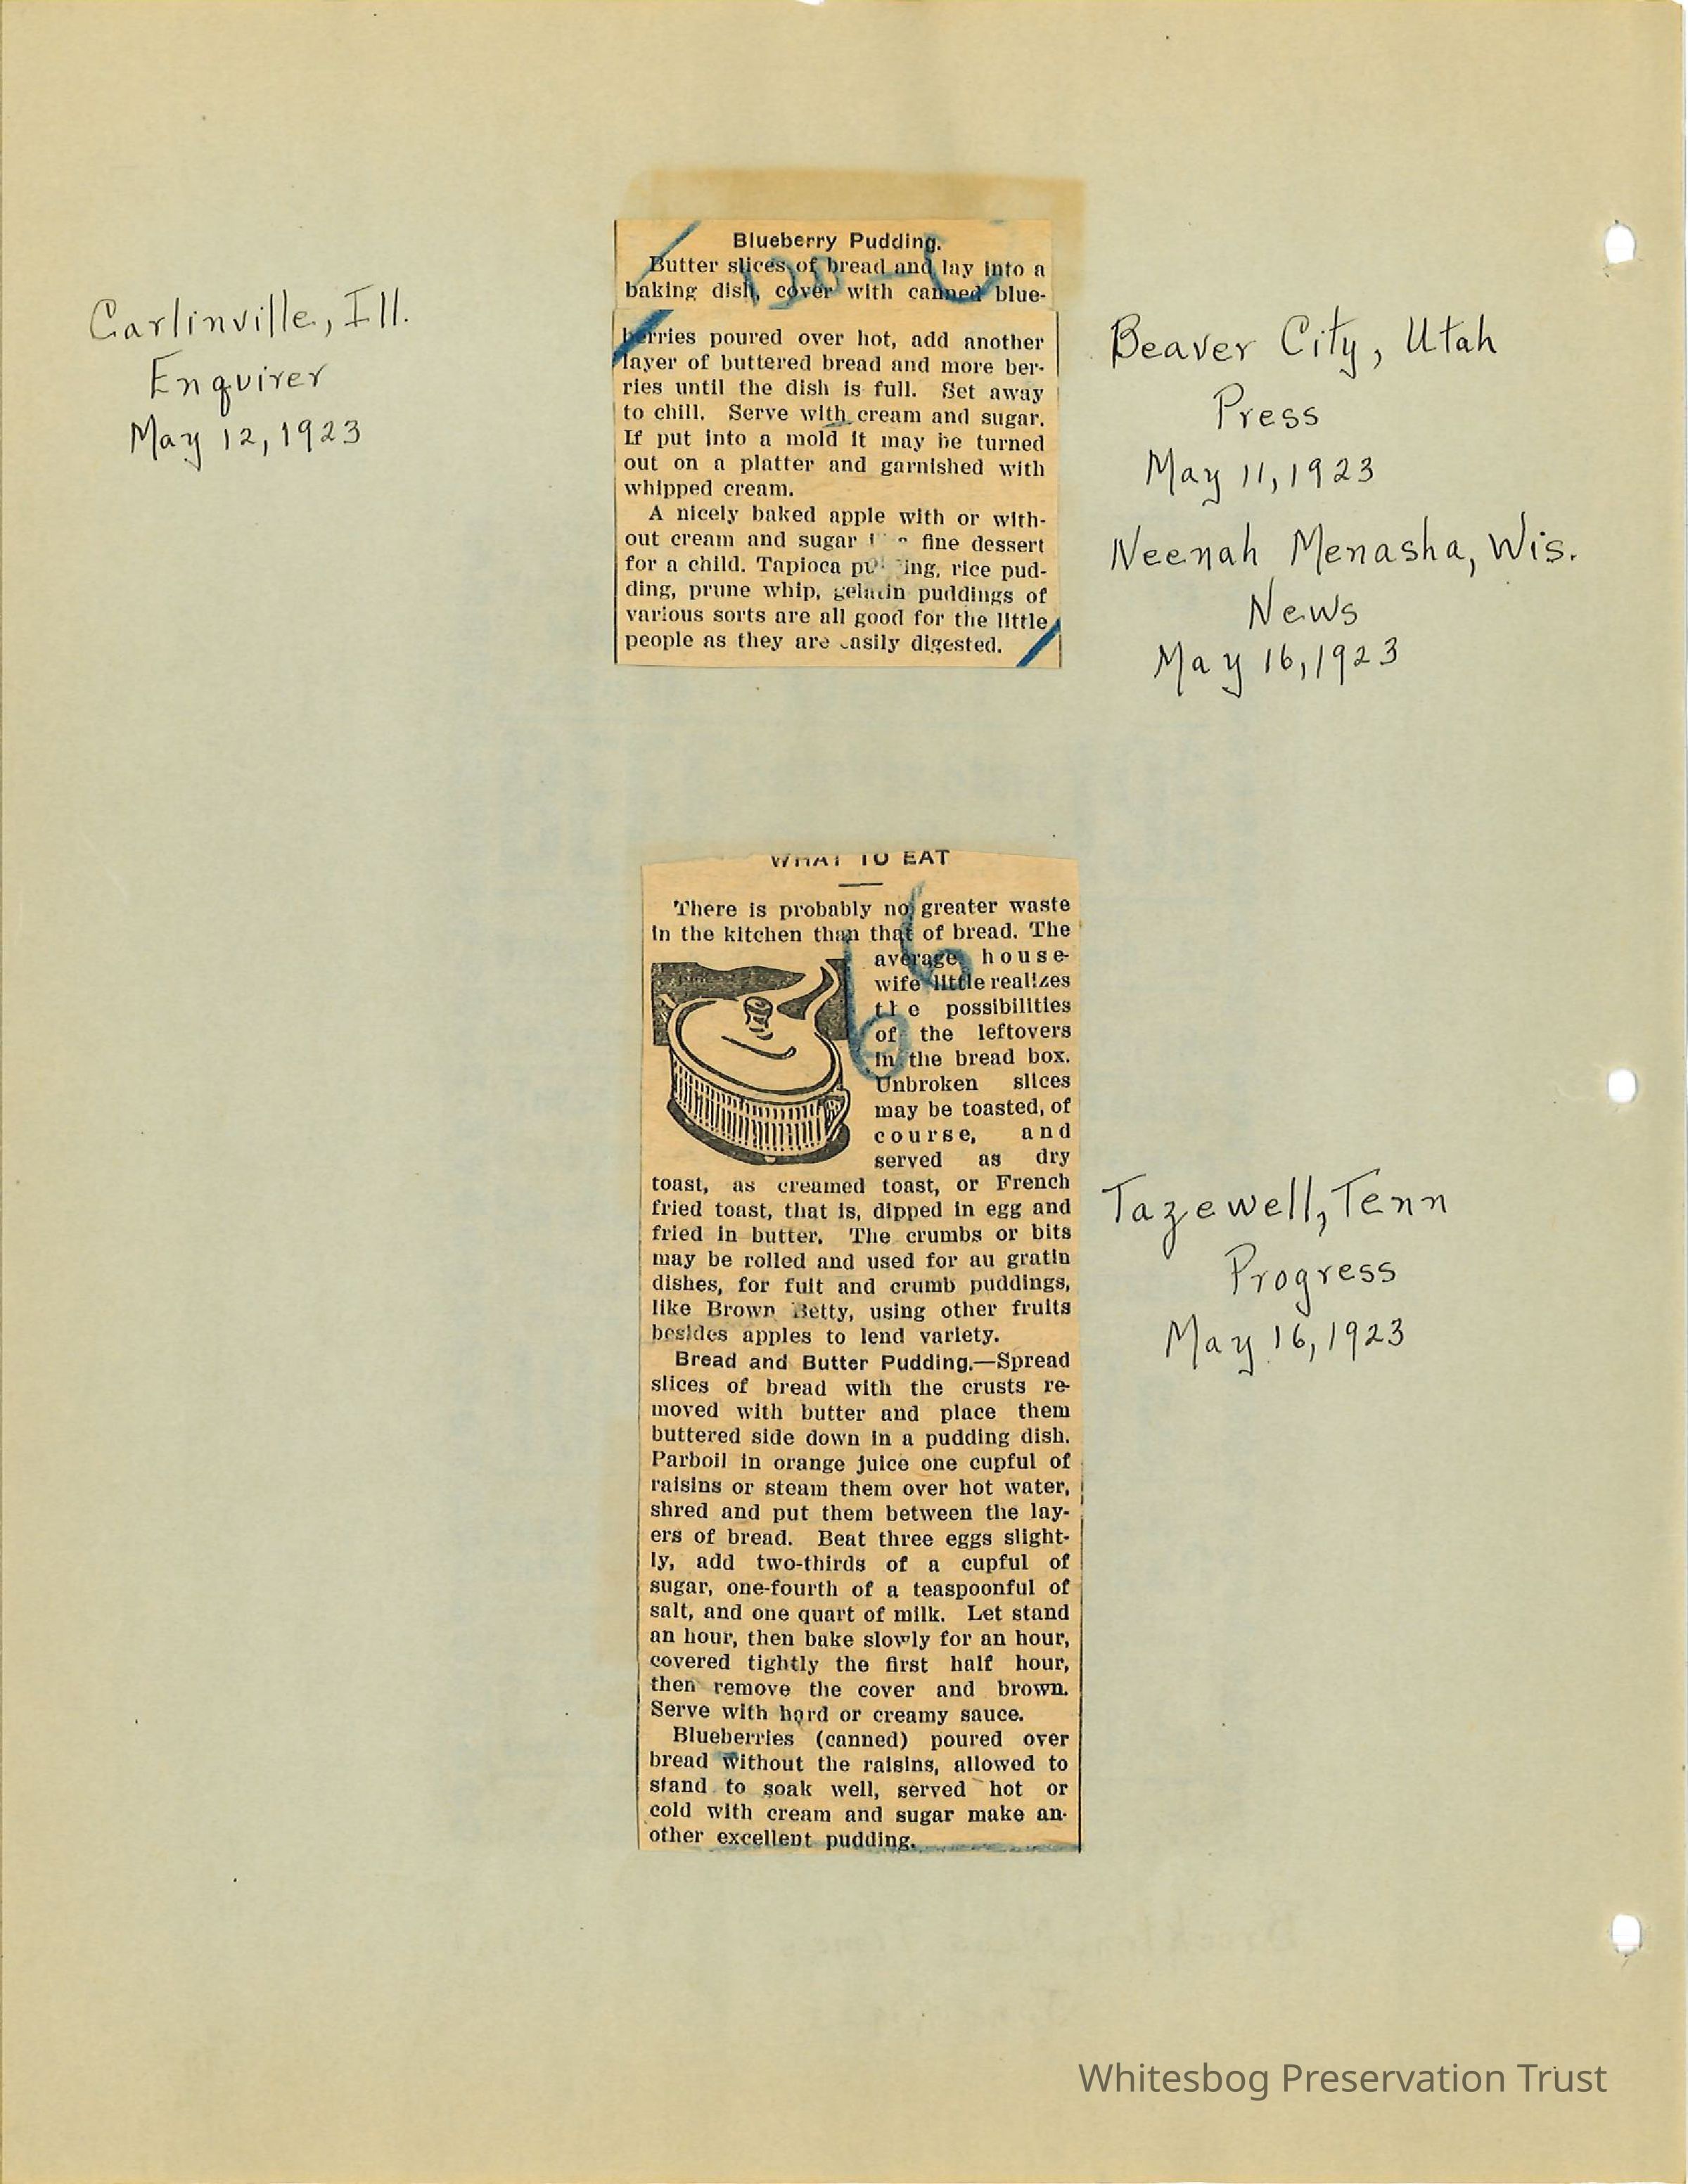 Carlinville, Ill.
Enquirer
May 12, 1923
Blueberry Pudding.
Butter slices of bread and lay into a
baking dish, cover with canned blue-
berries poured over hot, add another
layer of buttered bread and more ber-
ries until the dish is full. Set away
to chill. Serve with cream and sugar.
If put into a mold it may be turned
out on a platter and garnished with
whipped cream.
A nicely baked apple with or with-
out cream and sugar fine dessert
for a child. Tapioca pudding, rice pud-
ding, prune whip, gelatin puddings of
various sorts are all good for the little
people as they are easily digested.
Beaver City, Utah
Press
May 11, 1923
Neenah Menasha, Wis.
News
May 16, 1923
WHAT TO EAT
There is probably no greater waste
in the kitchen than that of bread. The
average house-
wife little realizes
the possibilities
of the leftovers
in the bread box.
Unbroken slices
may be toasted, of
course, and
served as dry
toast, as creamed toast, or French
fried toast, that is, dipped in egg and
fried in butter. The crumbs or bits
may be rolled and used for au gratin
dishes, for fuit and crumb puddings,
like Brown Betty, using other fruits
besides apples to lend variety.
Bread and Butter Pudding.—Spread
slices of bread with the crusts re-
moved with butter and place them
buttered side down in a pudding dish.
Parboil in orange juice one cupful of
raisins or steam them over hot water,
shred and put them between the lay-
ers of bread. Beat three eggs slight-
ly, add two-thirds of a cupful of
sugar, one-fourth of a teaspoonful of
salt, and one quart of milk. Let stand
an hour, then bake slowly for an hour,
covered tightly the first half hour,
then remove the cover and brown.
Serve with hard or creamy sauce.
Blueberries (canned) poured over
bread without the raisins, allowed to
stand to soak well, served hot or
cold with cream and sugar make an-
other excellent pudding.
Tazewell, Tenn
Progress
May 16, 1923
Whitesbog Preservation Trust